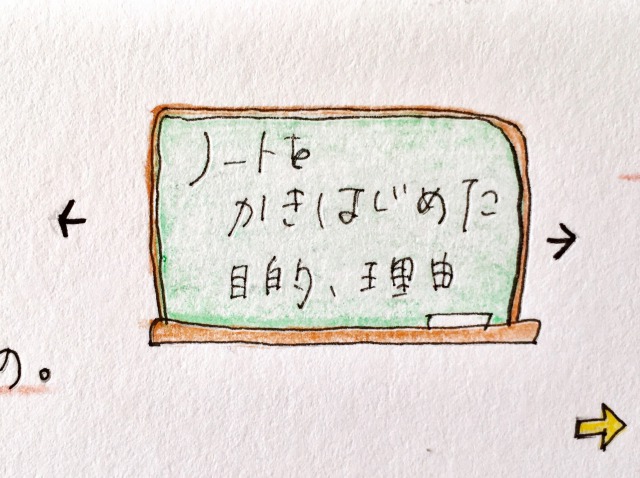 ノートを
かきはじめた
目的、理由
の。